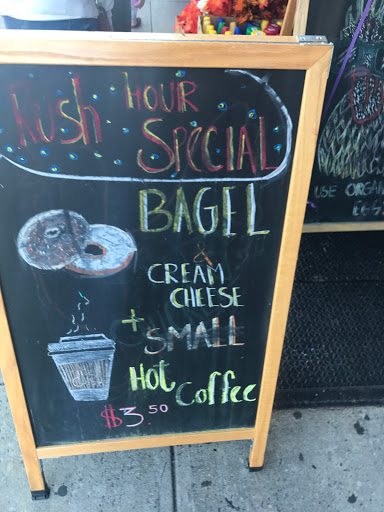 Rush HOUR
SPECIAL
BAGEL
&
CREAM
CHEESE
+ SMALL
Hot Coffee
$3.50
USE ORGANIC
EGGS